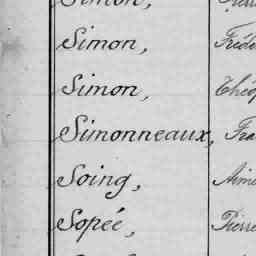 Simon,
Simon, Fréde
Simon, Théop
Simonneaux, Fra
Soing, Aimé
Sopéé, Pierre